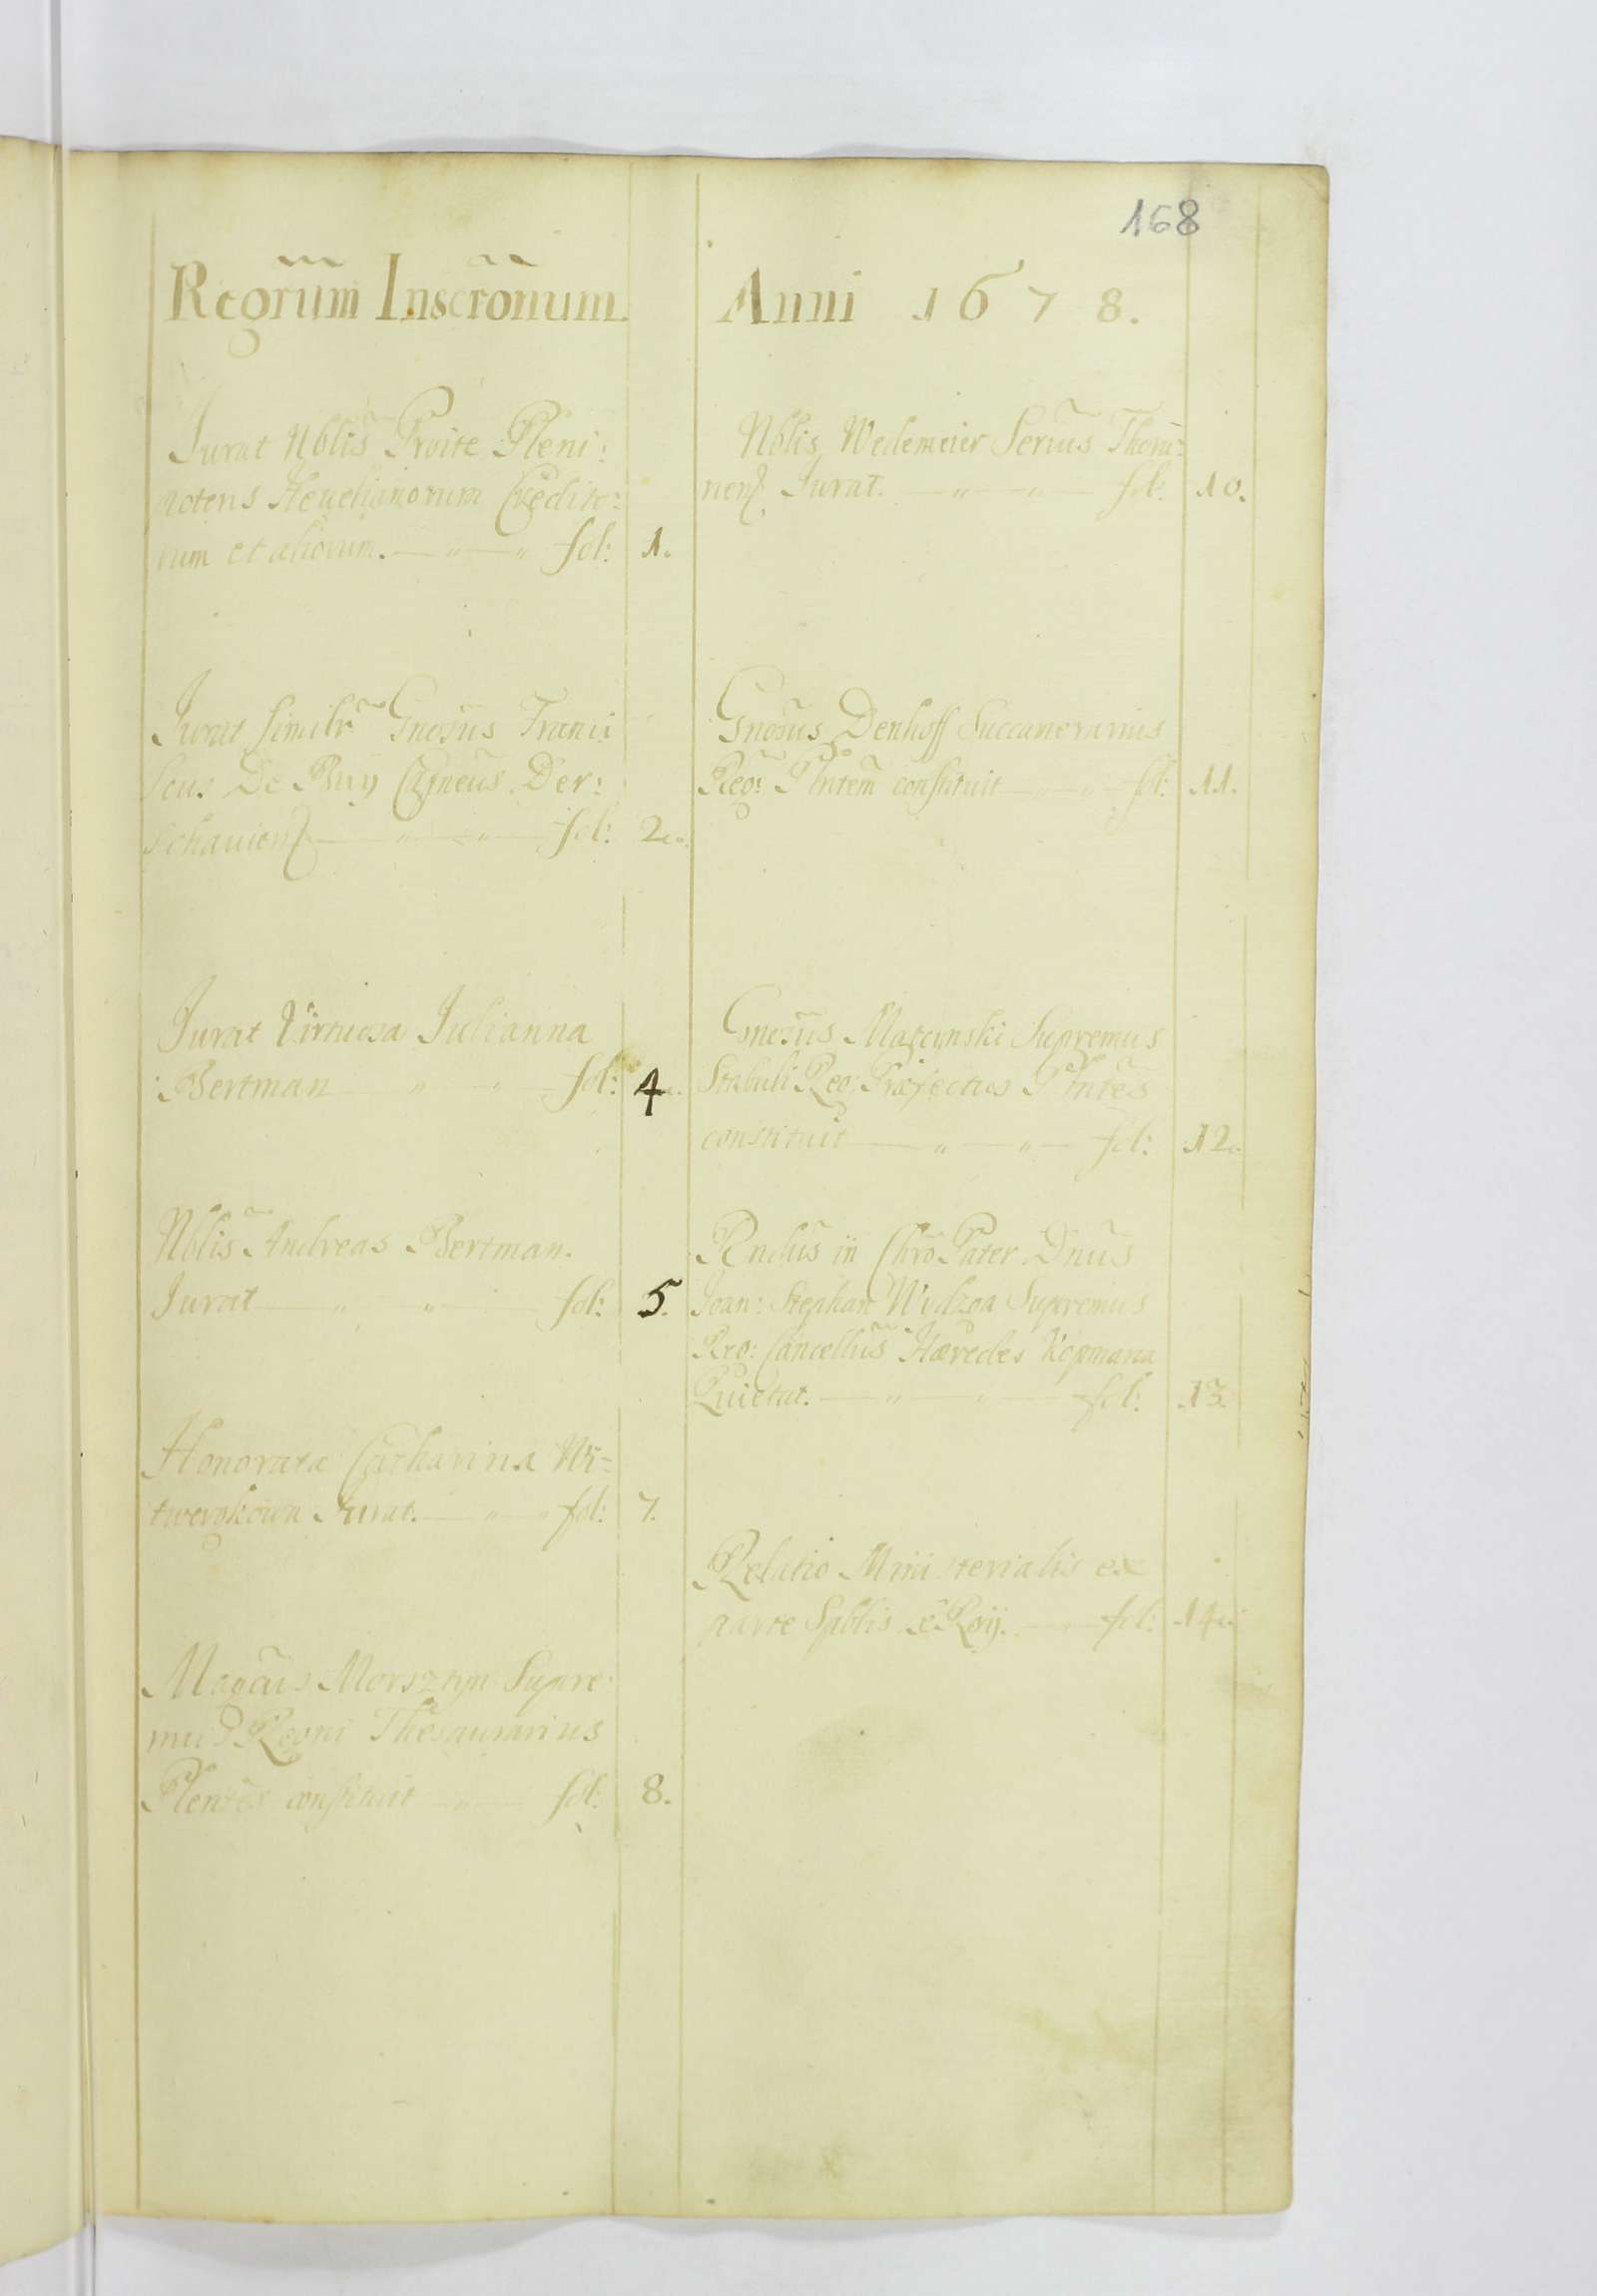 168
Regrum Inscronum
Jurat Nblis Proite Pleni:
potens Heuelianorum Credito:
rum et aliorum. fol: 1.
Jurat Similr Gnosus Franci
scus De Buy Cṕneus Der:
schauien fol: 2.
Jurat Virtuosa Julianna
Bertman fol: 4.
Nblis Andreas Bertman.
Jurat fol: 5.
Honorata Catharina
Jurat. fol: 7.
Magcus Morsztyn Supre:
mus Regni Thesaurarius
Plentes constituit fol: 8.
Anni 1678.
Nblis Wedemeier Serius Thoru:
nen Jurat. fol: 10.
Gnosus Denhoff Succamerarius
Reg: Plntem constituit fol: 11.
Gnosus Matcinski Supremus
Stabuli Reg: Præfectus Plntes
constituit fol: 12.
Rndus in Chro Pater Dnus
Joan: Stephan Wydzga Supremus
Reg: Cancellus Hæredes Kopmana
Quietat. fol: 13.
Relatio Ministerialis ex
parte Spblis fol: 14.